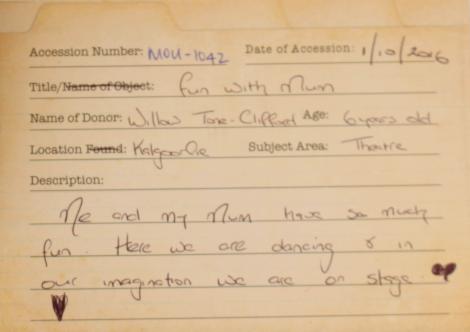 Accession Number: MOU-1042 Date of Accession: 1/10/2016
Title/Name of Object: Fun with Mum
Name of Donor: Willow Tane-Clifford Age: 6 years old
Location Found: Kalgoorlie Subject Area: Theatre
Description:
Me and my Mum have so much
fun. Here we are dancing & in
our imagination we are on stage.